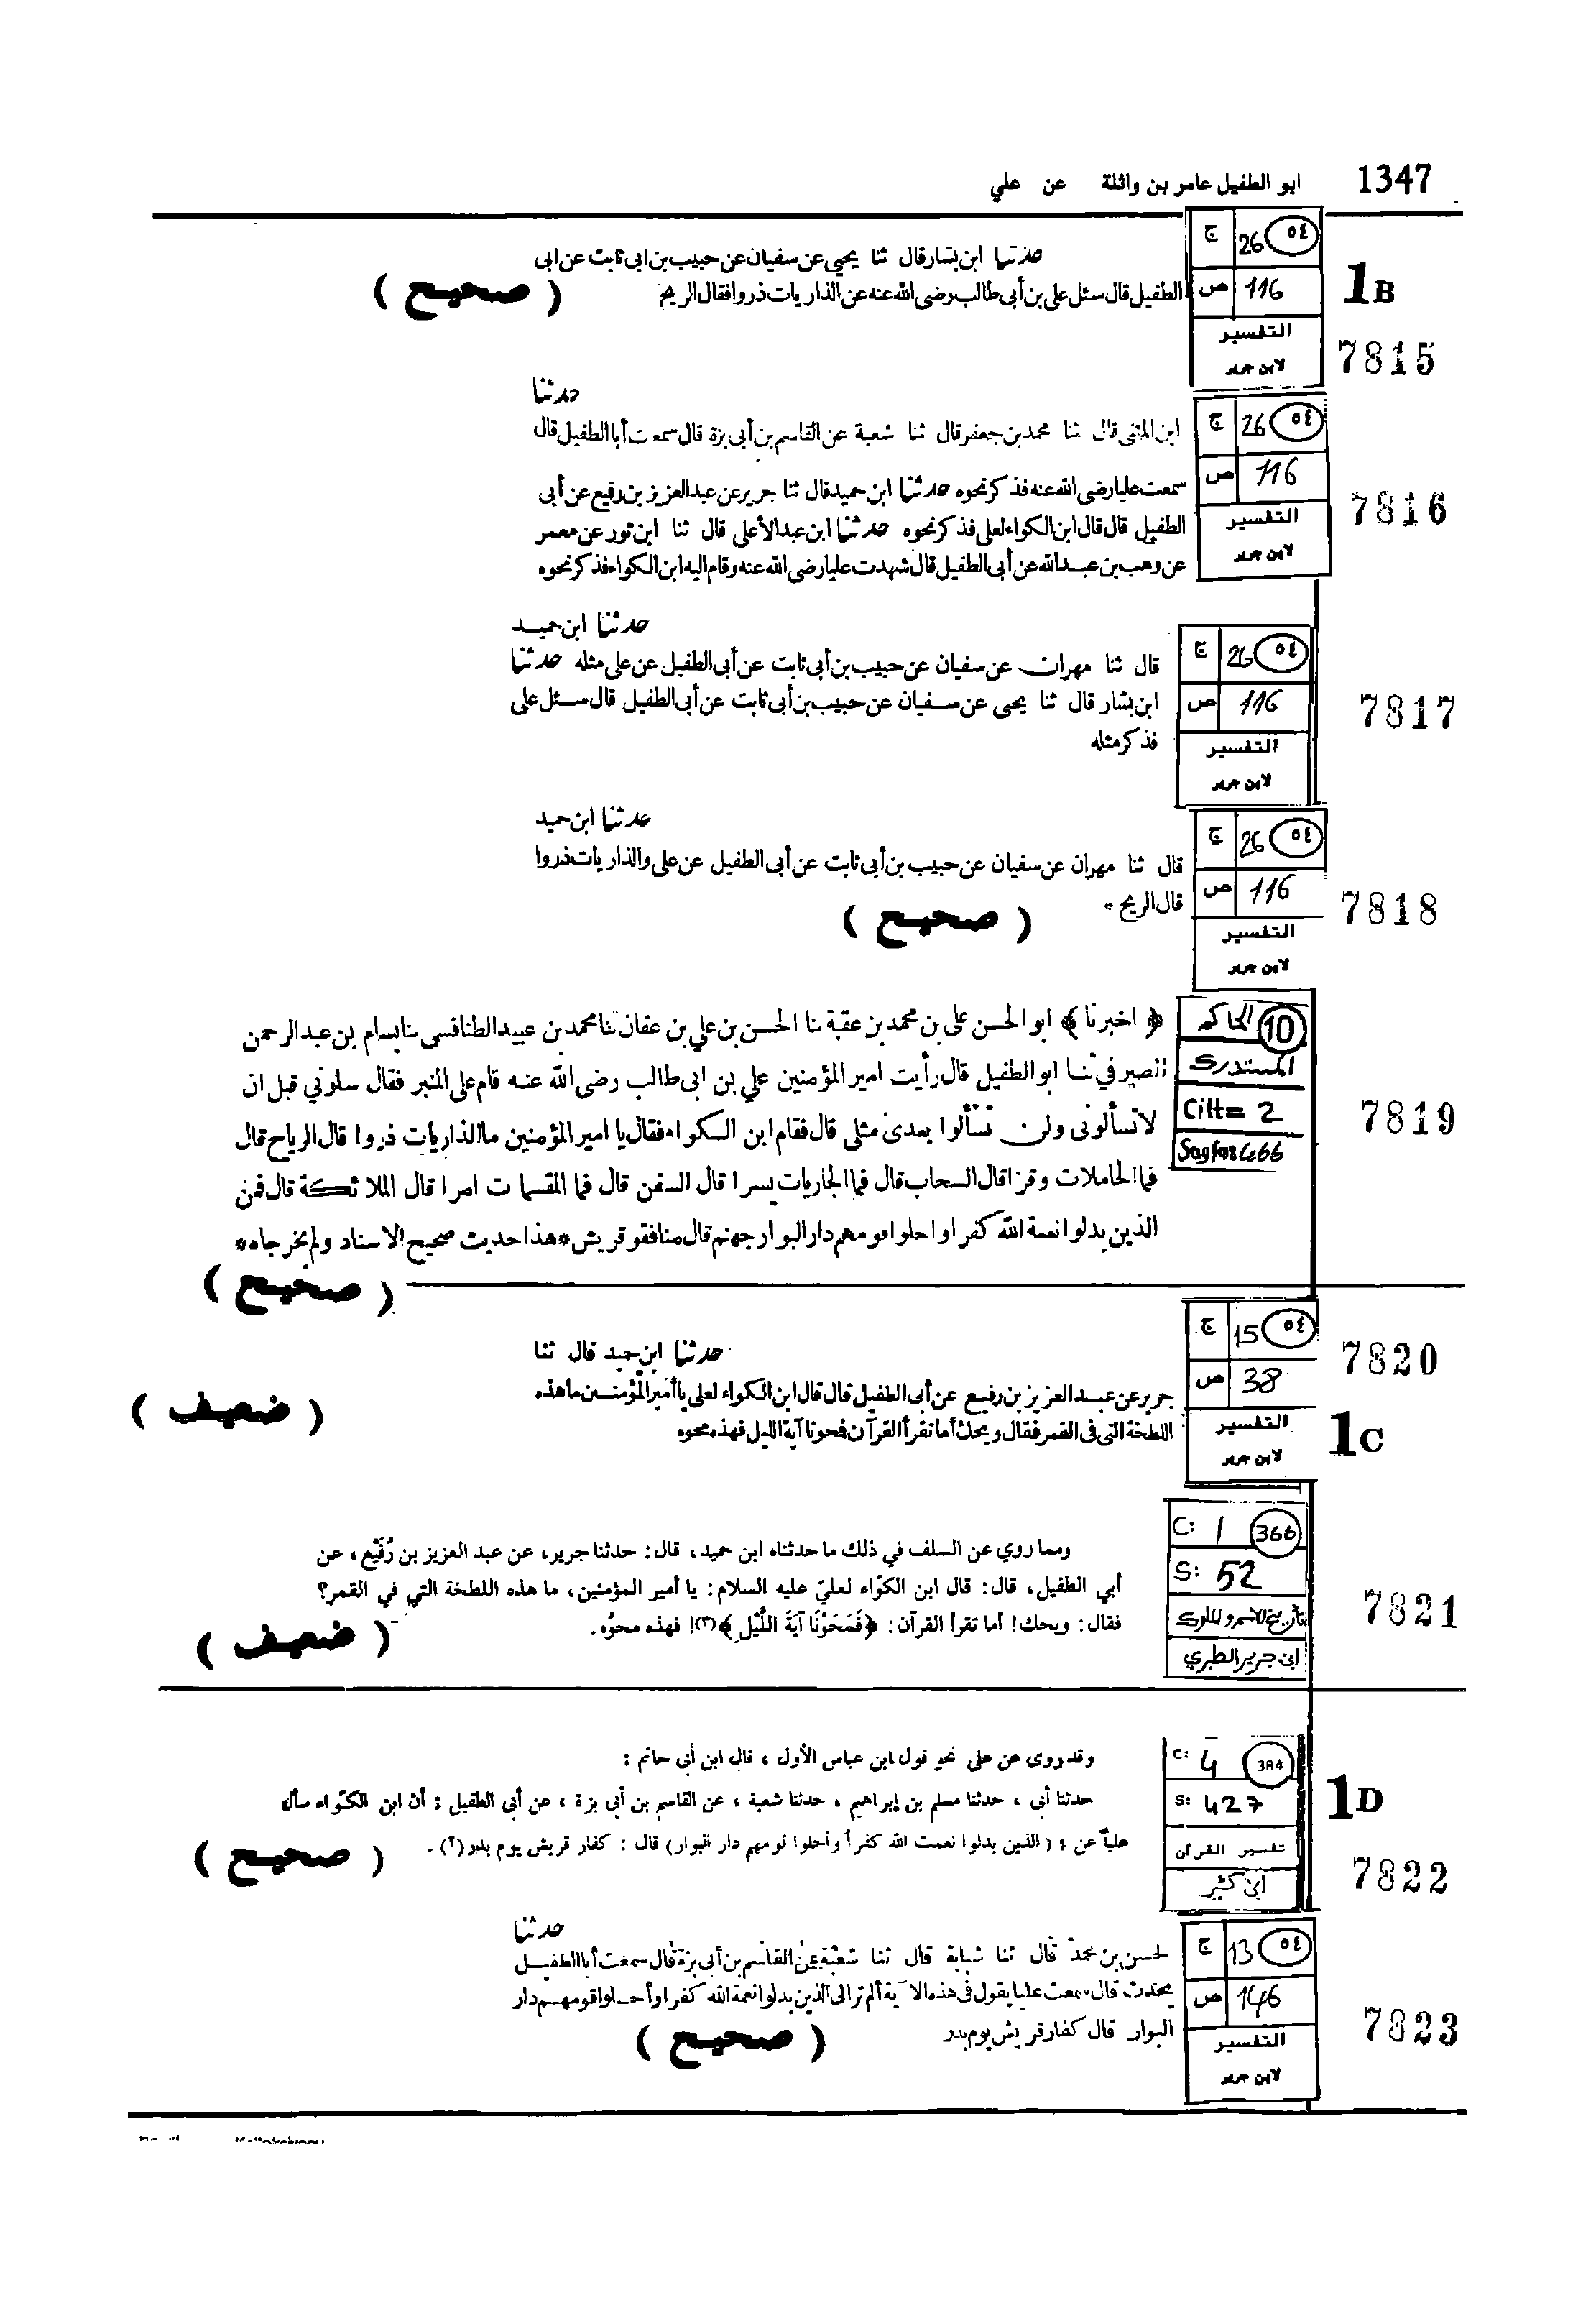 1347 ابو الطفيل عامر بن واثلة عن علي
ج 26 ٥٤
ص 116
التفسير
لابن جرير
1B
7815
حدثنا ابن بشار قال ثنا يحيى عن سفيان عن حبيب بن ابى ثابت عن ابى
الطفيل قال سئل على بن أبى طالب رضى الله عنه عن الذاريات ذروا فقال الريح
( صحيح )
ج 26 ٥٤
ص 116
التفسير
لابن جرير
7816
حدثنا
ابن المثنى قال ثنا محمد بن جعفر قال ثنا شعبة عن القاسم بن أبى بزة قال سمعت أبا الطفيل قال
سمعت عليا رضى الله عنه فذكر نحوه حدثنا ابن حميد قال ثنا جرير عن عبد العزيز بن رفيع عن أبى
الطفيل قال قال ابن الكواء لعلى فذكر نحوه حدثنا ابن عبد الأعلى قال ثنا ابن ثور عن معمر
عن وهب بن عبد الله عن أبى الطفيل قال شهدت عليا رضى الله عنه وقام اليه ابن الكواء فذكر نحوه
ج 26 ٥٤
ص 116
التفسير
لابن جرير
7817
حدثنا ابن حميد
قال ثنا مهران عن سفيان عن حبيب بن أبى ثابت عن أبى الطفيل عن على مثله حدثنا
ابن بشار قال ثنا يحيى عن سفيان عن حبيب بن أبى ثابت عن أبى الطفيل قال سئل على
فذكر مثله
ج 26 ٥٤
ص 116
التفسير
لابن جرير
7818
حدثنا ابن حميد
قال ثنا مهران عن سفيان عن حبيب بن أبى ثابت عن أبى الطفيل عن على والذاريات ذروا
قال الريح *
( صحيح )
الحاكم 10
المستدرك
Cilt= 2
Sayfa: 466
7819
﴿ اخبرنا ﴾ ابو الحسن على بن محمد بن عقبة ثنا الحسن بن علي بن عفان ثنا محمد بن عبيد الطنافسى ثنا بسام بن عبد الرحمن
الصيرفي ثنا ابو الطفيل قال رأيت امير المؤمنين علي بن ابى طالب رضى الله عنه قام على المنبر فقال سلونى قبل ان
لا تسألونى ولن تسألوا بعدى مثلى قال فقام ابن الكواء فقال يا امير المؤمنين ما الذاريات ذروا قال الرياح قال
فما الحاملات وقرا قال السحاب قال فما الجاريات يسرا قال السفن قال فما المقسمات امرا قال الملائكة قال فمن
الذين بدلوا نعمة الله كفرا واحلوا قومهم دار البوار جهنم قال منافقو قريش * هذا حديث صحيح الاسناد ولم يخرجاه *
( صحيح )
ج 15 ٥٤
ص 38
التفسير
لابن جرير
7820
1C
حدثنا ابن حميد قال ثنا
جرير عن عبد العزيز بن رفيع عن أبى الطفيل قال قال ابن الكواء لعلى يا أمير المؤمنين ما هذه
اللطخة التى فى القمر فقال ويحك أما تقرأ القرآن فمحونا آية الليل فهذه محوه
( ضعيف )
C: 1 366
S: 52
تاريخ الامم والملوك
ابن جرير الطبري
7821
ومما روي عن السلف في ذلك ما حدثناه ابن حميد، قال: حدثنا جرير، عن عبد العزيز بن رُفَيْع، عن
أبي الطفيل، قال: قال ابن الكوّاء لعليّ عليه السلام: يا أمير المؤمنين، ما هذه اللطخة التي في القمر؟
فقال: ويحك! أما تقرأ القرآن: ﴿فَمَحَوْنَا آيَةَ اللَّيْلِ﴾(٣)! فهذه محوُه.
( ضعيف )
C: 4 384
S: 427
تفسير القرآن
ابن كثير
1D
7822
وقد روى عن على نحو قول ابن عباس الأول ، قال ابن أبى حاتم :
حدثنا أبى ، حدثنا مسلم بن إبراهيم ، حدثنا شعبة ، عن القاسم بن أبى بزة ، عن أبى الطفيل : أن ابن الكواء سأل
علياً عن : ( الذين بدلوا نعمت الله كفراً وأحلوا قومهم دار البوار) قال : كفار قريش يوم بدر(٢) .
( صحيح )
ج 13 ٥٤
ص 146
التفسير
لابن جرير
7823
حدثنا
لحسن بن محمد قال ثنا شبابة قال ثنا شعبة عن القاسم بن أبى بزة قال سمعت أبا الطفيل
يحدث قال سمعت عليا يقول فى هذه الآية ألم تر الى الذين بدلوا نعمة الله كفرا وأحلوا قومهم دار
البوار قال كفار قريش يوم بدر
( صحيح )